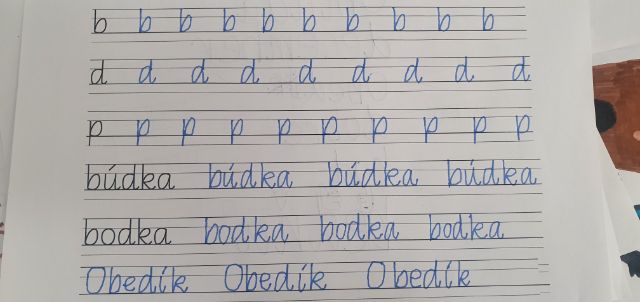 b b b b b b b b b b
d d d d d d d d d
p p p p p p p p p p
búdka búdka búdka búdka
bodka bodka bodka bodka
Obedík Obedík Obedík